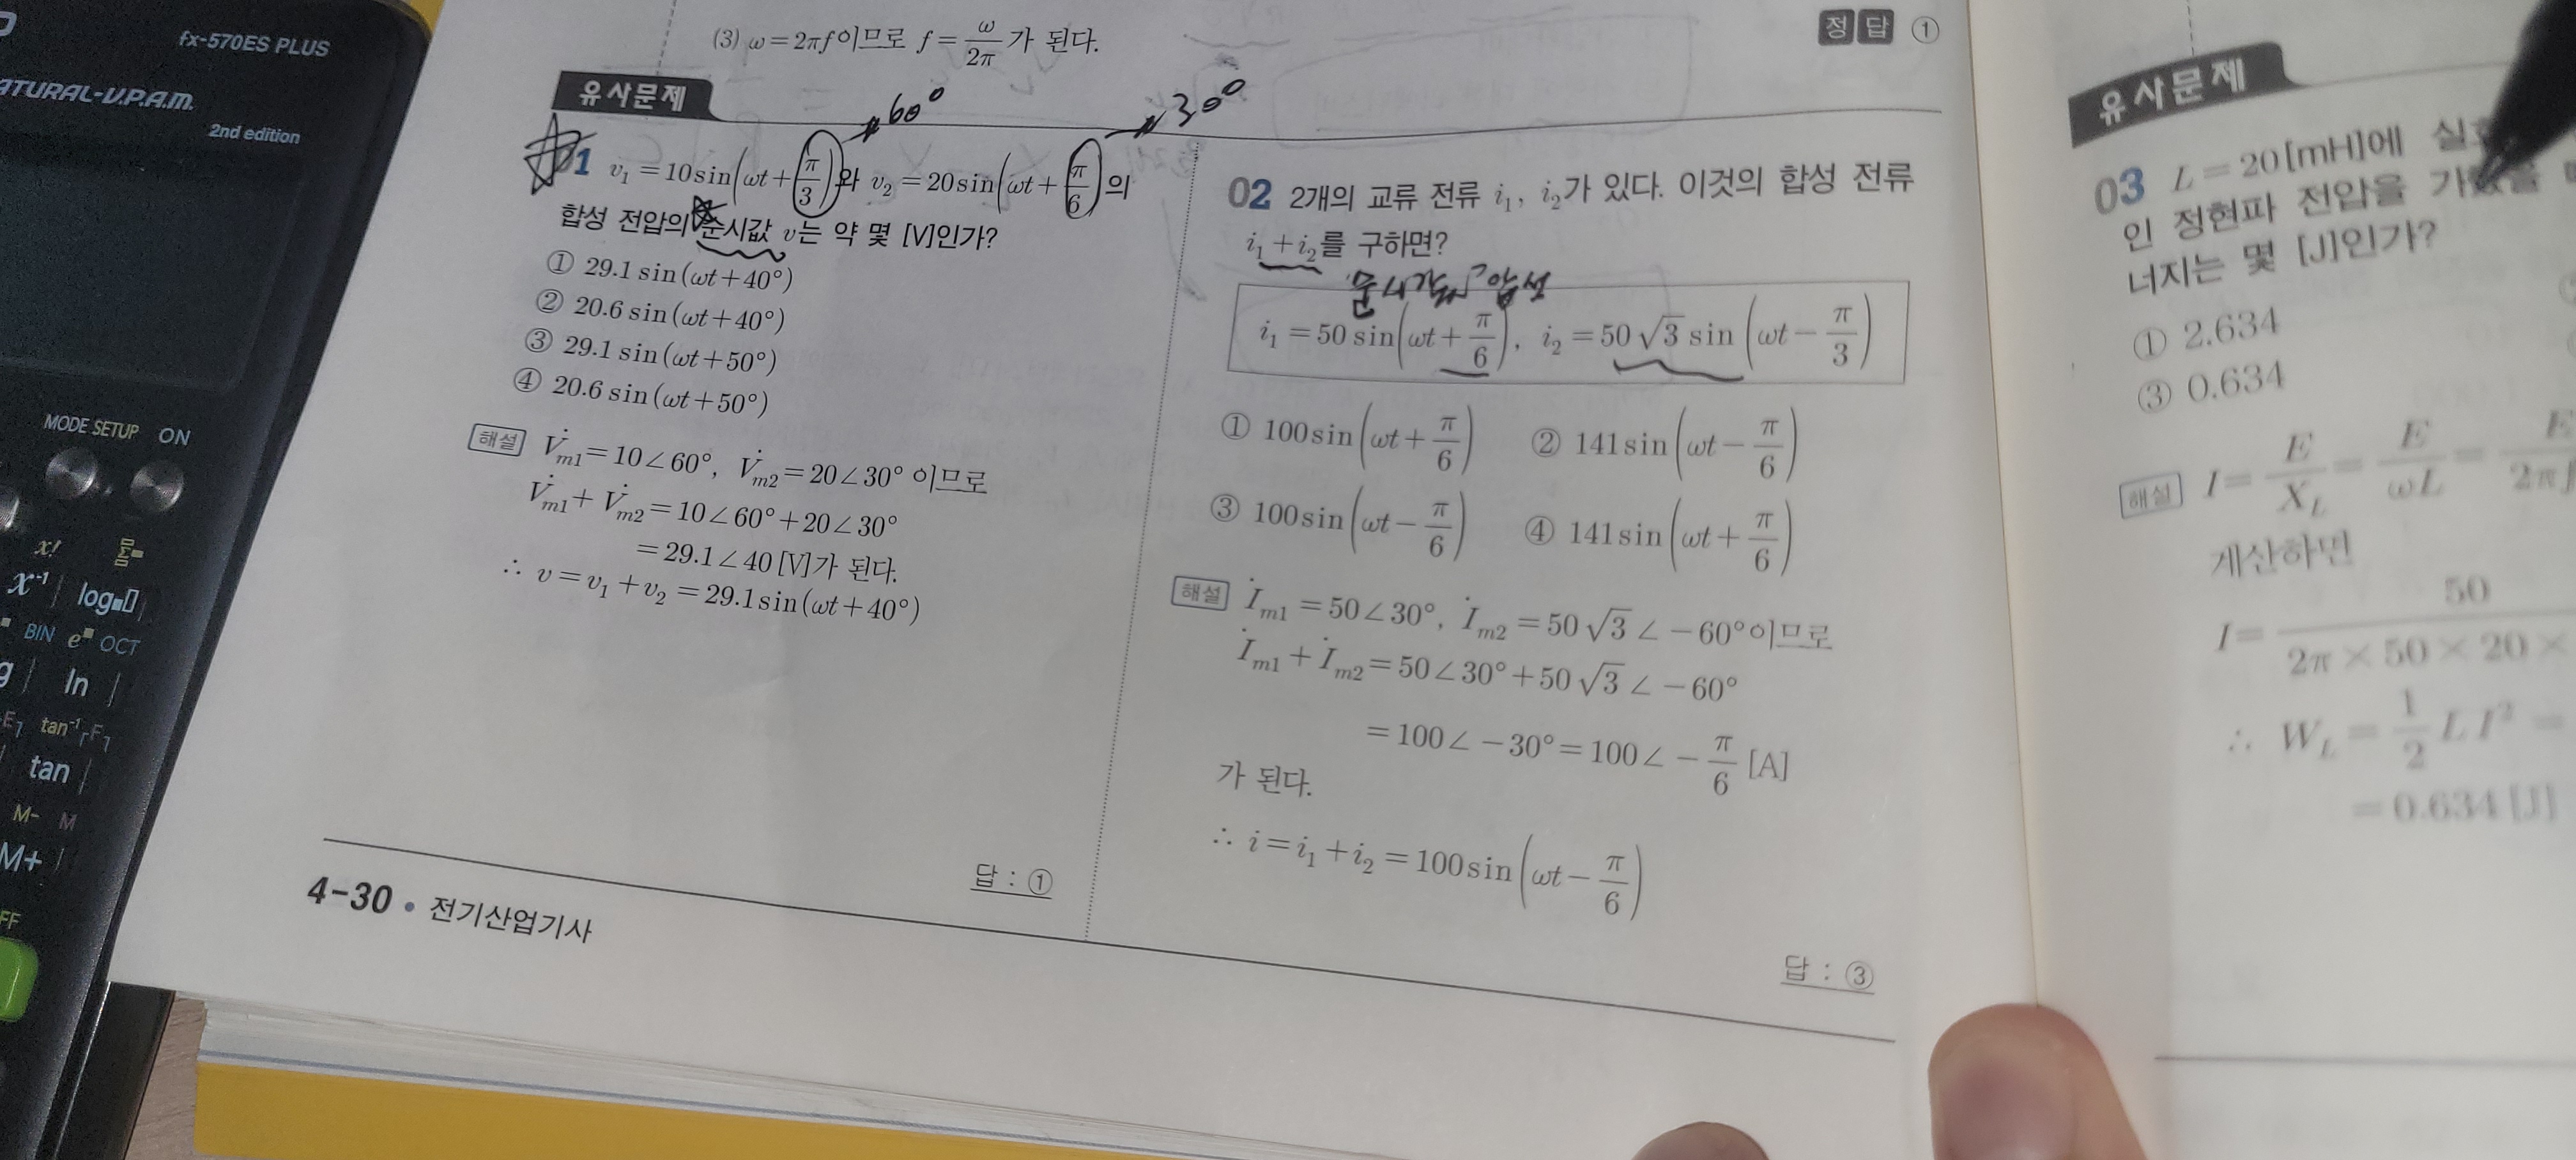 fx-570ES PLUS
NATURAL-V.P.A.M.
2nd edition
MODE SETUP ON
x!
x⁻¹ log
BIN e OCT
ln
tan⁻¹
tan
M- M
M+
(3) ω=2πf이므로 f=ω/2π가 된다.
정답 ①
유사문제
60°
30°
01 v₁=10sin(ωt+π/3)와 v₂=20sin(ωt+π/6)의
합성 전압의 순시값 v는 약 몇 [V]인가?
① 29.1 sin(ωt+40°)
② 20.6 sin(ωt+40°)
③ 29.1 sin(ωt+50°)
④ 20.6 sin(ωt+50°)
해설 V̇m1=10∠60°, V̇m2=20∠30° 이므로
V̇m1+V̇m2=10∠60°+20∠30°
=29.1∠40 [V]가 된다.
∴ v=v₁+v₂=29.1sin(ωt+40°)
답 : ①
02 2개의 교류 전류 i₁, i₂가 있다. 이것의 합성 전류
i₁+i₂를 구하면?
i₁=50 sin(ωt+π/6), i₂=50√3 sin(ωt-π/3)
① 100sin(ωt+π/6) ② 141sin(ωt-π/6)
③ 100sin(ωt-π/6) ④ 141sin(ωt+π/6)
해설 İm1=50∠30°, İm2=50√3∠-60°이므로
İm1+İm2=50∠30°+50√3∠-60°
=100∠-30°=100∠-π/6 [A]
가 된다.
∴ i=i₁+i₂=100sin(ωt-π/6)
답 : ③
4-30 • 전기산업기사
유사문제
03 L=20[mH]에
인 정현파 전압을
너지는 몇 [J]인가?
① 2.634
③ 0.634
해설 I=E/X_L=E/ωL=
계산하면
I=50/2π×50×20×
∴ W_L=1/2LI²=
=0.634[J]